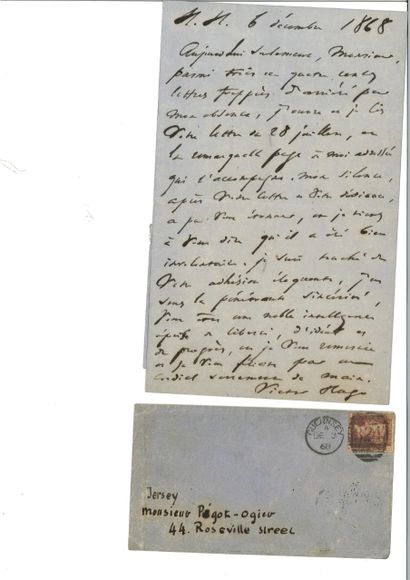 H. H. 6 décembre 1868
Aujourd'hui seulement, Monsieur,
parmi trois ou quatre cents
lettres frappées d'arriéré par
mon absence, j'ouvre et je lis
Votre lettre du 28 juillet, et
la remarquable page à moi adressée
qui l'accompagne. Mon silence,
après Votre lettre et Votre dédicace,
a pu Vous étonner, et je tiens
à Vous dire qu'il a été bien
involontaire. Je suis touché de
Votre adhésion éloquente, j'en
sens la pénétrante sincérité,
Vous êtes une noble intelligence
éprise de liberté, d'idéal et
de progrès, et je Vous remercie
et je Vous félicite par un
cordial serrement de main.
Victor Hugo
GUERNSEY
A
DE
68
324
Jersey
monsieur Pégot-Ogier
44. Roseville street